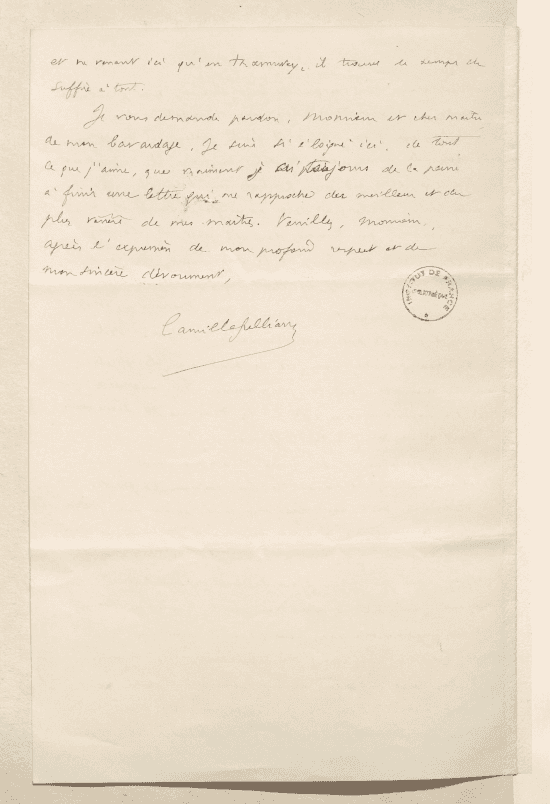 et ne venant ici qu'en il trouve le temps de
suffire à tout.
Je vous demande pardon, Monsieur et cher maître
de mon bavardage. Je suis si éloigné ici, de tout
ce que j'aime, que vraiment j'ai toujours de la peine
à finir une lettre qui me rapproche du meilleur et du
plus vénéré de mes maîtres. Veuillez, Monsieur,
agréer l'expression de mon profond respect et de
mon sincère dévouement,
Camille Jullian
INSTITUT DE FRANCE